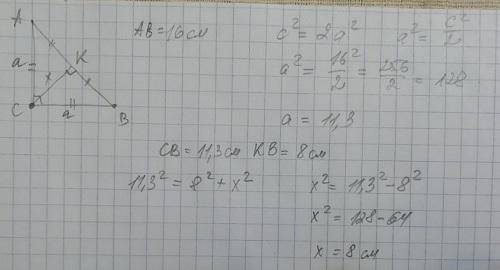 A
a
K
x
C
a
B
AB = 16 см
c² = 2a²
a² = c²/2
a² = 16²/2 = 256/2 = 128
a = 11,3
CB = 11,3 см KB = 8 см
11,3² = 8² + x²
x² = 11,3² - 8²
x² = 128 - 64
x = 8 см